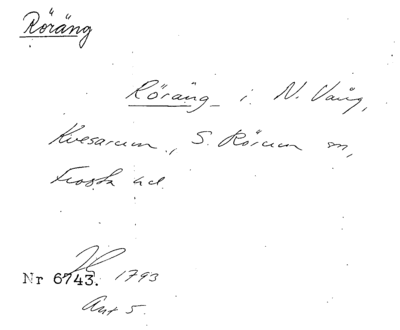 Röräng
Röräng i N. Vång,
Kvesarum, S. Rörum sn,
Frosta hd.
Nr 6743. 1793
Akt 5.